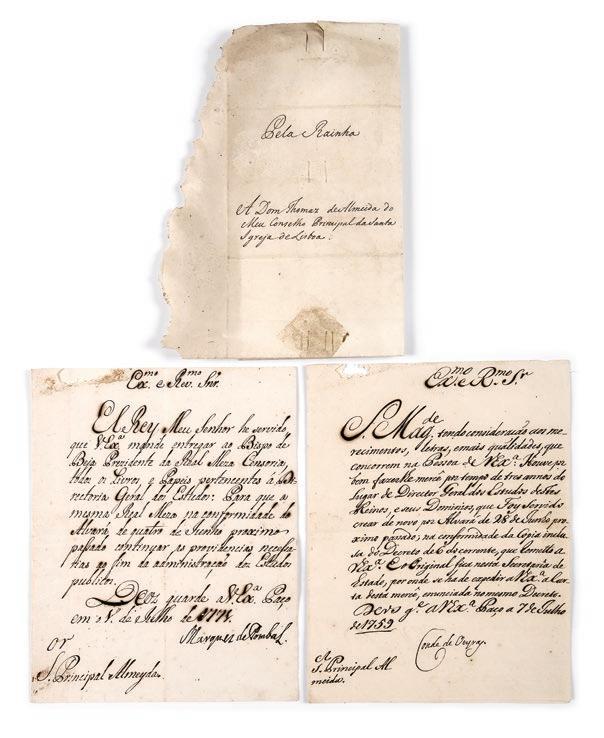 Pela Rainha
A Dom Thomaz de Almeida do
Meu Conselho Principal da Santa
Igreja de Lisboa.
Ex.mo e Rev.mo Snr.
El Rey Meu Senhor he servido,
que V. Ex.a mande entregar ao Bispo de
Beja Prezidente da Real Meza Censoria,
todos os Livros, e Papeis pertencentes á Di-
rectoria Geral dos Estudos: Para que a
mesma Real Meza na conformidade do
Alvará, de quatro de Junho proximo
passado continuar as providencias necessa-
rias ao fim da administração dos Estudos
publicos.
Deos guarde a V. Ex.a Paço
em de Julho de 1771.
Marquez de Pombal.
S. Principal Almeyda.
Ex.mo e R.mo S.r
S. Mag.de tendo consideração aos me-
recimentos, letras, e mais qualidades, que
concorrem na Pessoa de V Ex.a Houve por
bem fazerlhe mercê por tempo de tres annos do
lugar de Director Geral dos Estudos destes
Reinos, e seus Dominios, que Foy Servido
crear de novo por Alvará de 28 de Junho pro-
ximo passado; na conformidade da Copia inclu-
sa do Decreto de 6 do corrente, que remetto a
V Ex.a E o Original fica nesta Secretaria de
Estado, por onde se ha de expedir a V Ex.a a Car-
ta desta mercê, enunciada no mesmo Decreto.
Deos g.e a V Ex.a Paço a 7 de Julho
de 1759
Conde de Oeyras.
S. Principal Al
meida.